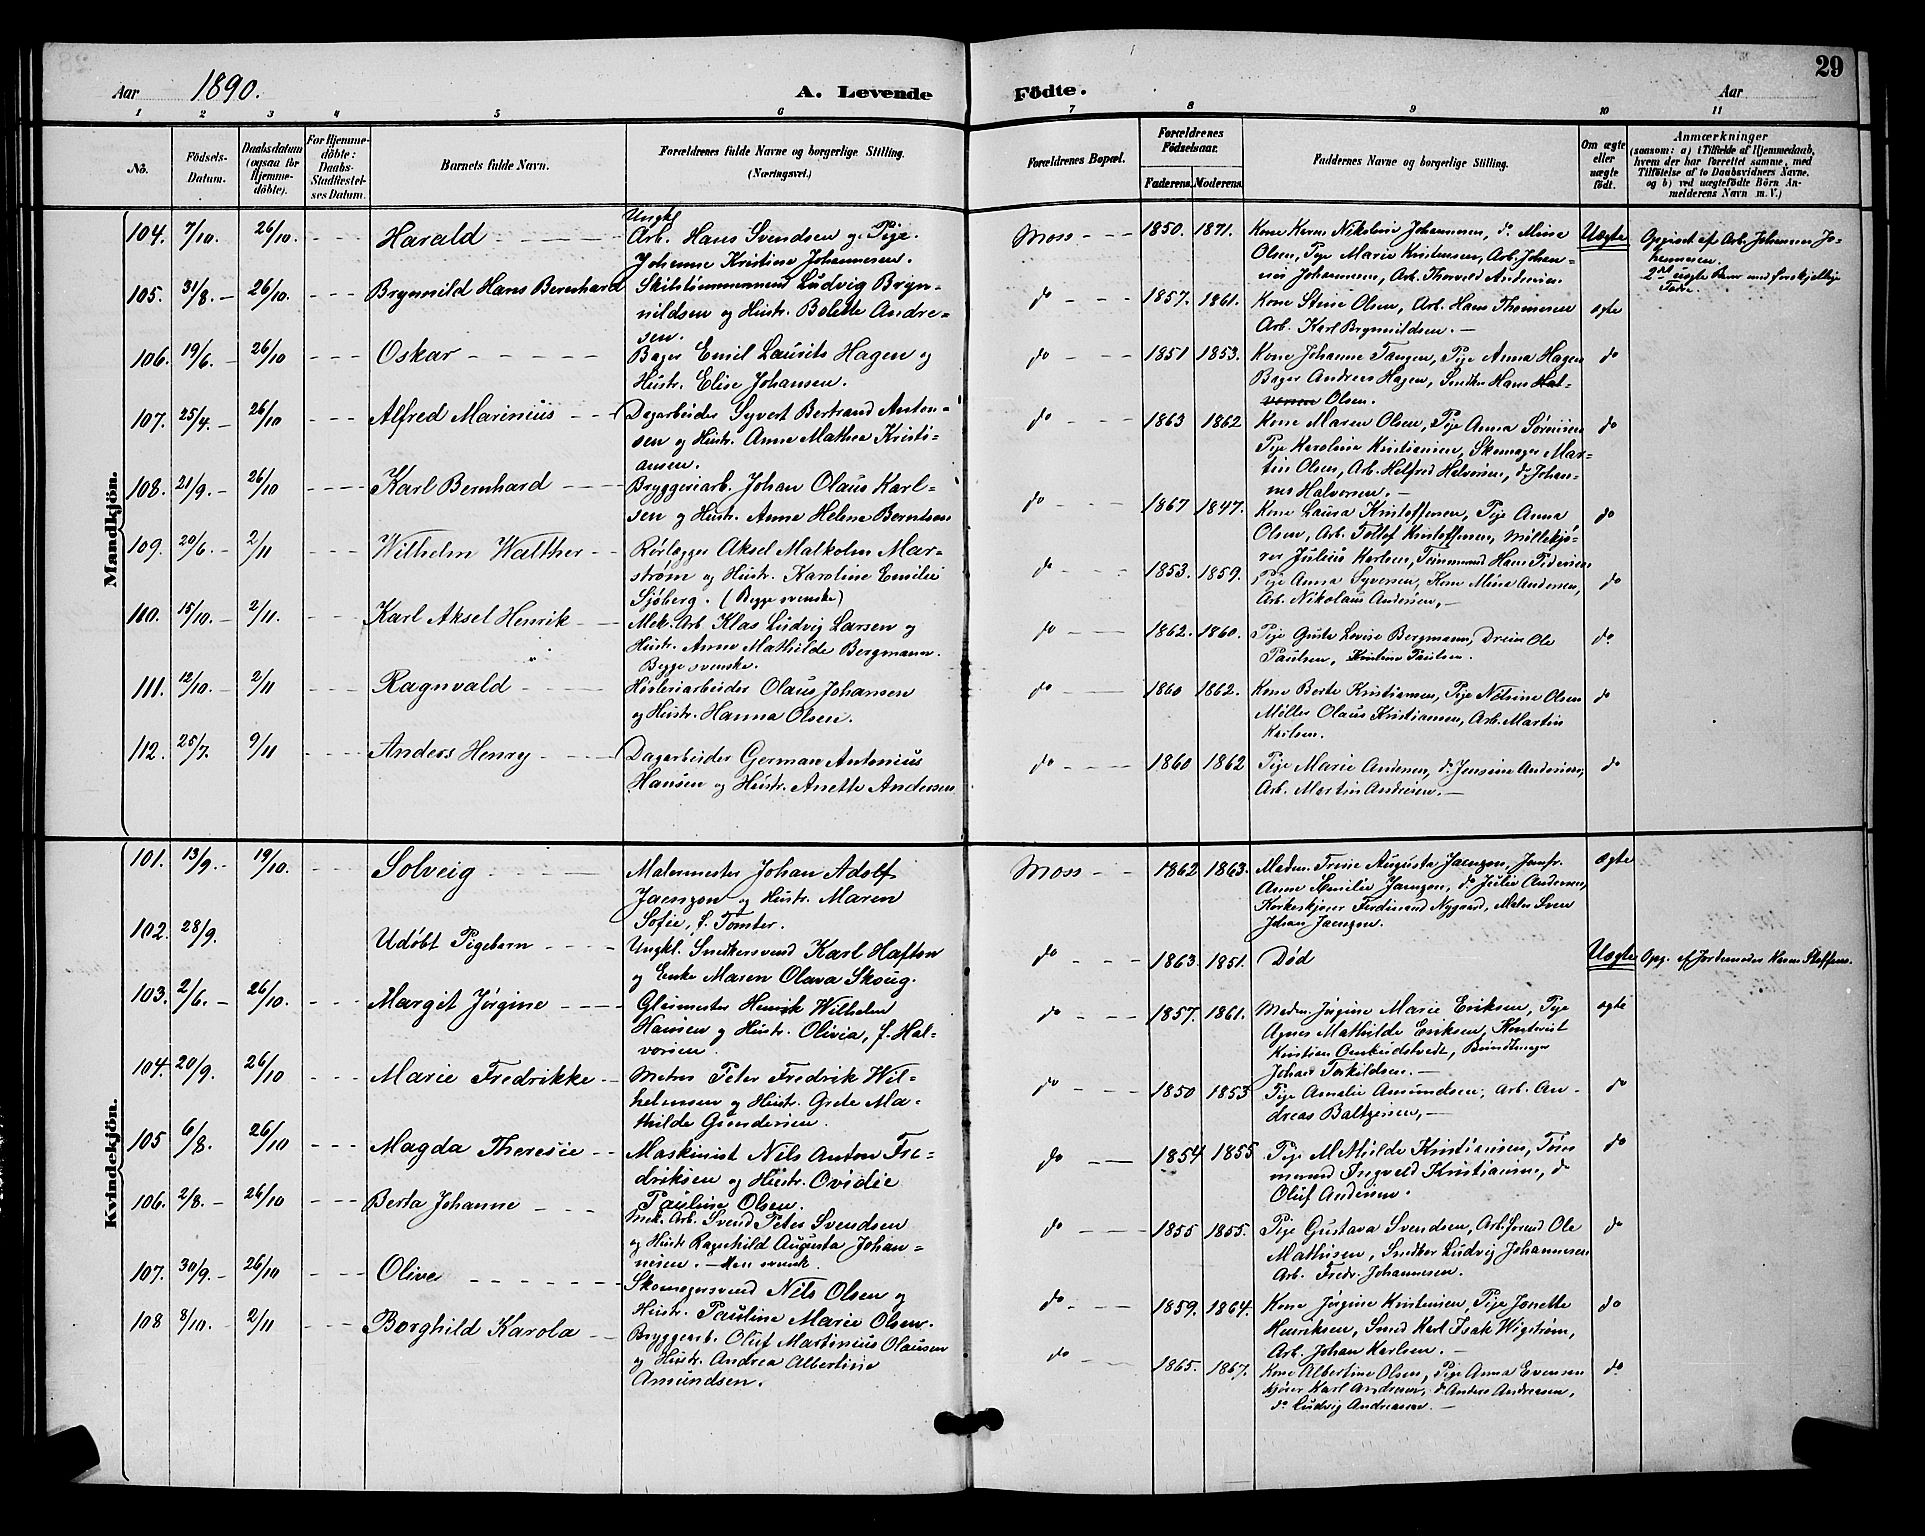 29
Aar 1890. A. Levende Födte. Aar
1 2 3 4 5 6 7 8 9 10 11
No. Födsels-Datum. Daabsdatum (ogsaa for Hjemme-döbte). For Hjemme-döbte: Daabs-Stadfæstel-ses Datum. Barnets fulde Navn. Forældrenes fulde Navne og borgerlige Stilling. (Næringsvei.) Forældrenes Bopæl. Forældrenes Födselsaar. Faderens. Moderens. Faddernes Navne og borgerlige Stilling. Om ægte eller uægte födt. Anmærkninger (saasom: a) i Tilfælde af Hjemmedaab, hvem der har forrettet samme, med Tilföielse af to Daabsvidners Navne, og b) ved uægtefödte Börn An-melderens Navn m. V.)
Mandkjön.
104. 7/10. 26/10. Harald Ungkl
Arb. Hans Svendsen og Pige
Johanne Kristine Johannesen.
Moss 1850. 1871. Kone Karen Nikoline Johannesen, do Mina
Olsen, Pige Marie Kristensen, Arb. Johan-
nes Johannesen, Arb. Thorvald Andersen.
Uægte Opgivet af Arb. Johannes Jo-
hannesen.
2det uægte Barn med forskjellige
Fædre.
105. 31/8. 26/10. Brynnild Hans Bernhard Skibstømmermand Ludvig Bryn-
nildsen og Hustr. Bolette Andre-
sen.
do 1857. 1861. Kone Stine Olsen, Arb. Hans Thomesen
Arb. Karl Brynnildsen.
ægte
106. 19/6. 26/10 Oskar Bager Emil Laurits Hagen og
Hustr. Elise Johansen.
do 1851 1853. Kone Johanne Tangen, Pige Anna Hagen
Bager Andreas Hagen, Snedker Hans Hal-
versen Olsen.
do
107. 25/4. 26/10 Alfred Marinius Dagarbeider Syvert Bertrand Anton-
sen og Hustr. Anne Mathea Kristi-
ansen.
do 1863 1862 Kone Maren Olsen, Pige Anna Sørensen
Pige Karoline Kristiansen, Skomager Mar-
tin Olsen, Arb. Halfred Halvorsen, do Johan-
nes Halvorsen.
do
108. 21/9. 26/10 Karl Bernhard Bryggeriarb. Johan Olaus Karl-
sen og Hustr. Anne Helene Berntsen
do 1867 1847. Kone Laura Kristoffersen, Pige Anna
Olsen, Arb. Tollef Kristoffersen, Møllekjø-
rer Julius Karlsen, Tømmermand Hans Pedersen
do
109. 20/6. 2/11 Wilhelm Walther Rørlægger Aksel Malkolm Mar-
strøm og Hustr. Karoline Emilie
Sjøberg. (Begge svenske)
do 1853. 1859. Pige Anna Syversen, Kone Mina Andersen,
Arb. Nikolaus Andersen,
do
110. 15/10. 2/11. Karl Aksel Henrik Mek. Arb. Klas Ludvig Larsen og
Hustr. Anna Mathilde Bergmann.
Begge svenske.
do 1862. 1860. Pige Gusta Lovise Bergmann, Dreier Ole
Paulsen, Kristine Paulsen.
do
111. 12/10. 2/11 Ragnvald Høvleriarbeider Olaus Johansen
og Hustr. Hanna Olsen.
do 1860 1862. Kone Berte Kristiansen, Pige Olsen
Møller Olaus Kristiansen, Arb. Martin
Karlsen.
do
112. 25/7. 9/11 Anders Henry Dagarbeider German Antonius
Hansen og Hustr. Anette Andersen
do 1860 1862 Pige Marie Andersen, do Jensine Andersen,
Arb. Martin Andresen.
do
Kvindekjön.
101. 13/9. 19/10. Solveig Malermester Johan Adolf
Jaenzon og Hustr. Maren
Sofie, f. Tomter.
Moss 1862 1863. Madm. Trine Augusta Jaenzon, Jomfr.
Anna Emilie Jaenzon, do Julie Andersen,
Korkeskjærer Ferdinand Nygaard, Maler Sven
Johan Jaenzon.
ægte
102. 28/9. Udøbt Pigebarn Ungkl. Snedkersvend Karl Hafton
og Enke Maren Olava Skoug.
do 1863. 1851. Død
Uægte Opg. af Jordemoder Karen Steffens.
103. 2/6. 26/10. Margit Jørgine Glasmester Henrik Wilhelm
Hansen og Hustr. Olivia, f. Hal-
vorsen.
do 1857. 1861. Madm. Jørgine Marie Eriksen, Pige
Agnes Mathilde Eriksen,
Kristian Bundtmager
Johan Torkildsen.
ægte
104. 20/9. 26/10 Marie Fredrikke Matros Peter Fredrik Wil-
helmsen og Hustr. Grete Ma-
thilde Gundersen.
do 1850 1853 Pige Amalie Amundsen, Arb. An-
dreas Baltzersen,
do
105 6/8. 26/10 Magda Theresie Maskinist Nils Anton Fre-
driksen og Hustr. Ovidie
Pauline Olsen.
do 1854 1855 Pige Mathilde Kristiansen, Tøm-
mermand Ingvald Kristiansen, do
Oluf Andersen.
do
106. 2/8. 26/10 Berta Johanne Mek. Arb. Svend Peter Svendsen
og Hustr Ragnhild Augusta Johan-
nesen. Man svensk.
do 1855 1855. Pige Gustava Svendsen, Arb. Svend Ole
Mathisen, Snedker Ludvig Johannesen
Arb. Fredr. Johannesen.
do
107. 30/9. 26/10 Olive Skomagersvend Nils Olsen og
Hustr. Pauline Marie Olsen.
do 1859. 1864. Kone Jørgine Kristensen, Pige Jonette
Henriksen, Smed Karl Isak Wigstrøm,
Arb. Johan Karlsen.
do
108 8/10. 2/11 Borghild Karola Bryggearb. Oluf Martinius Olausen
og Hustr. Andrea Albertine
Amundsen.
do 1865. 1867. Kone Albertine Olsen, Pige Anna Evensen
kjører Karl Andresen, do Anders Andreasen,
do Ludvig Andreasen.
do